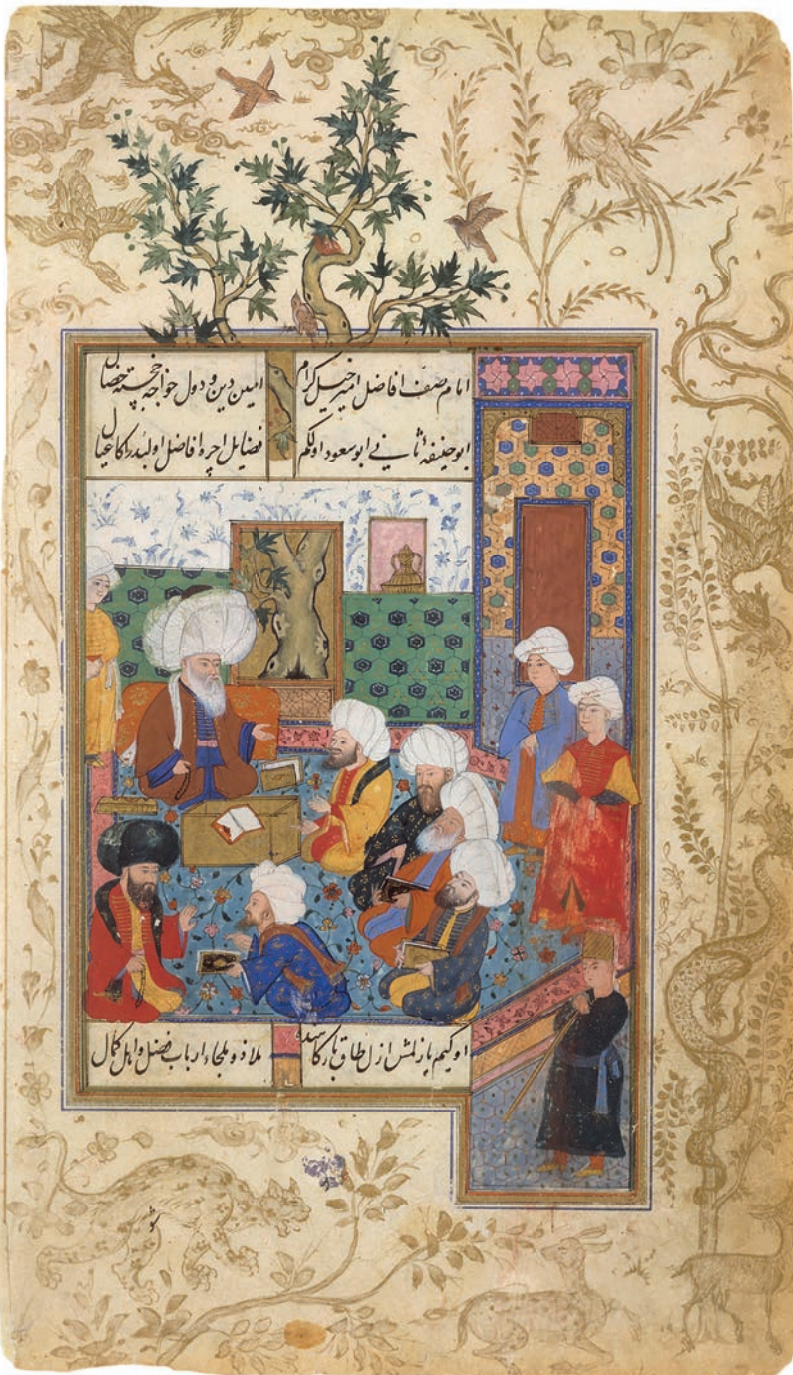 امام صف افاضل امیر خیل کرام امین دین و دول خواجۀ خجسته خصال
ابو حنیفۀ ثانی ابو سعود اولکم فضایل اچره افاضل اولبدر اکا عیال
اوکیم یازلمش ازل طاق بارکاهنده ملاذ و ملجاء ارباب فضل و اهل کمال